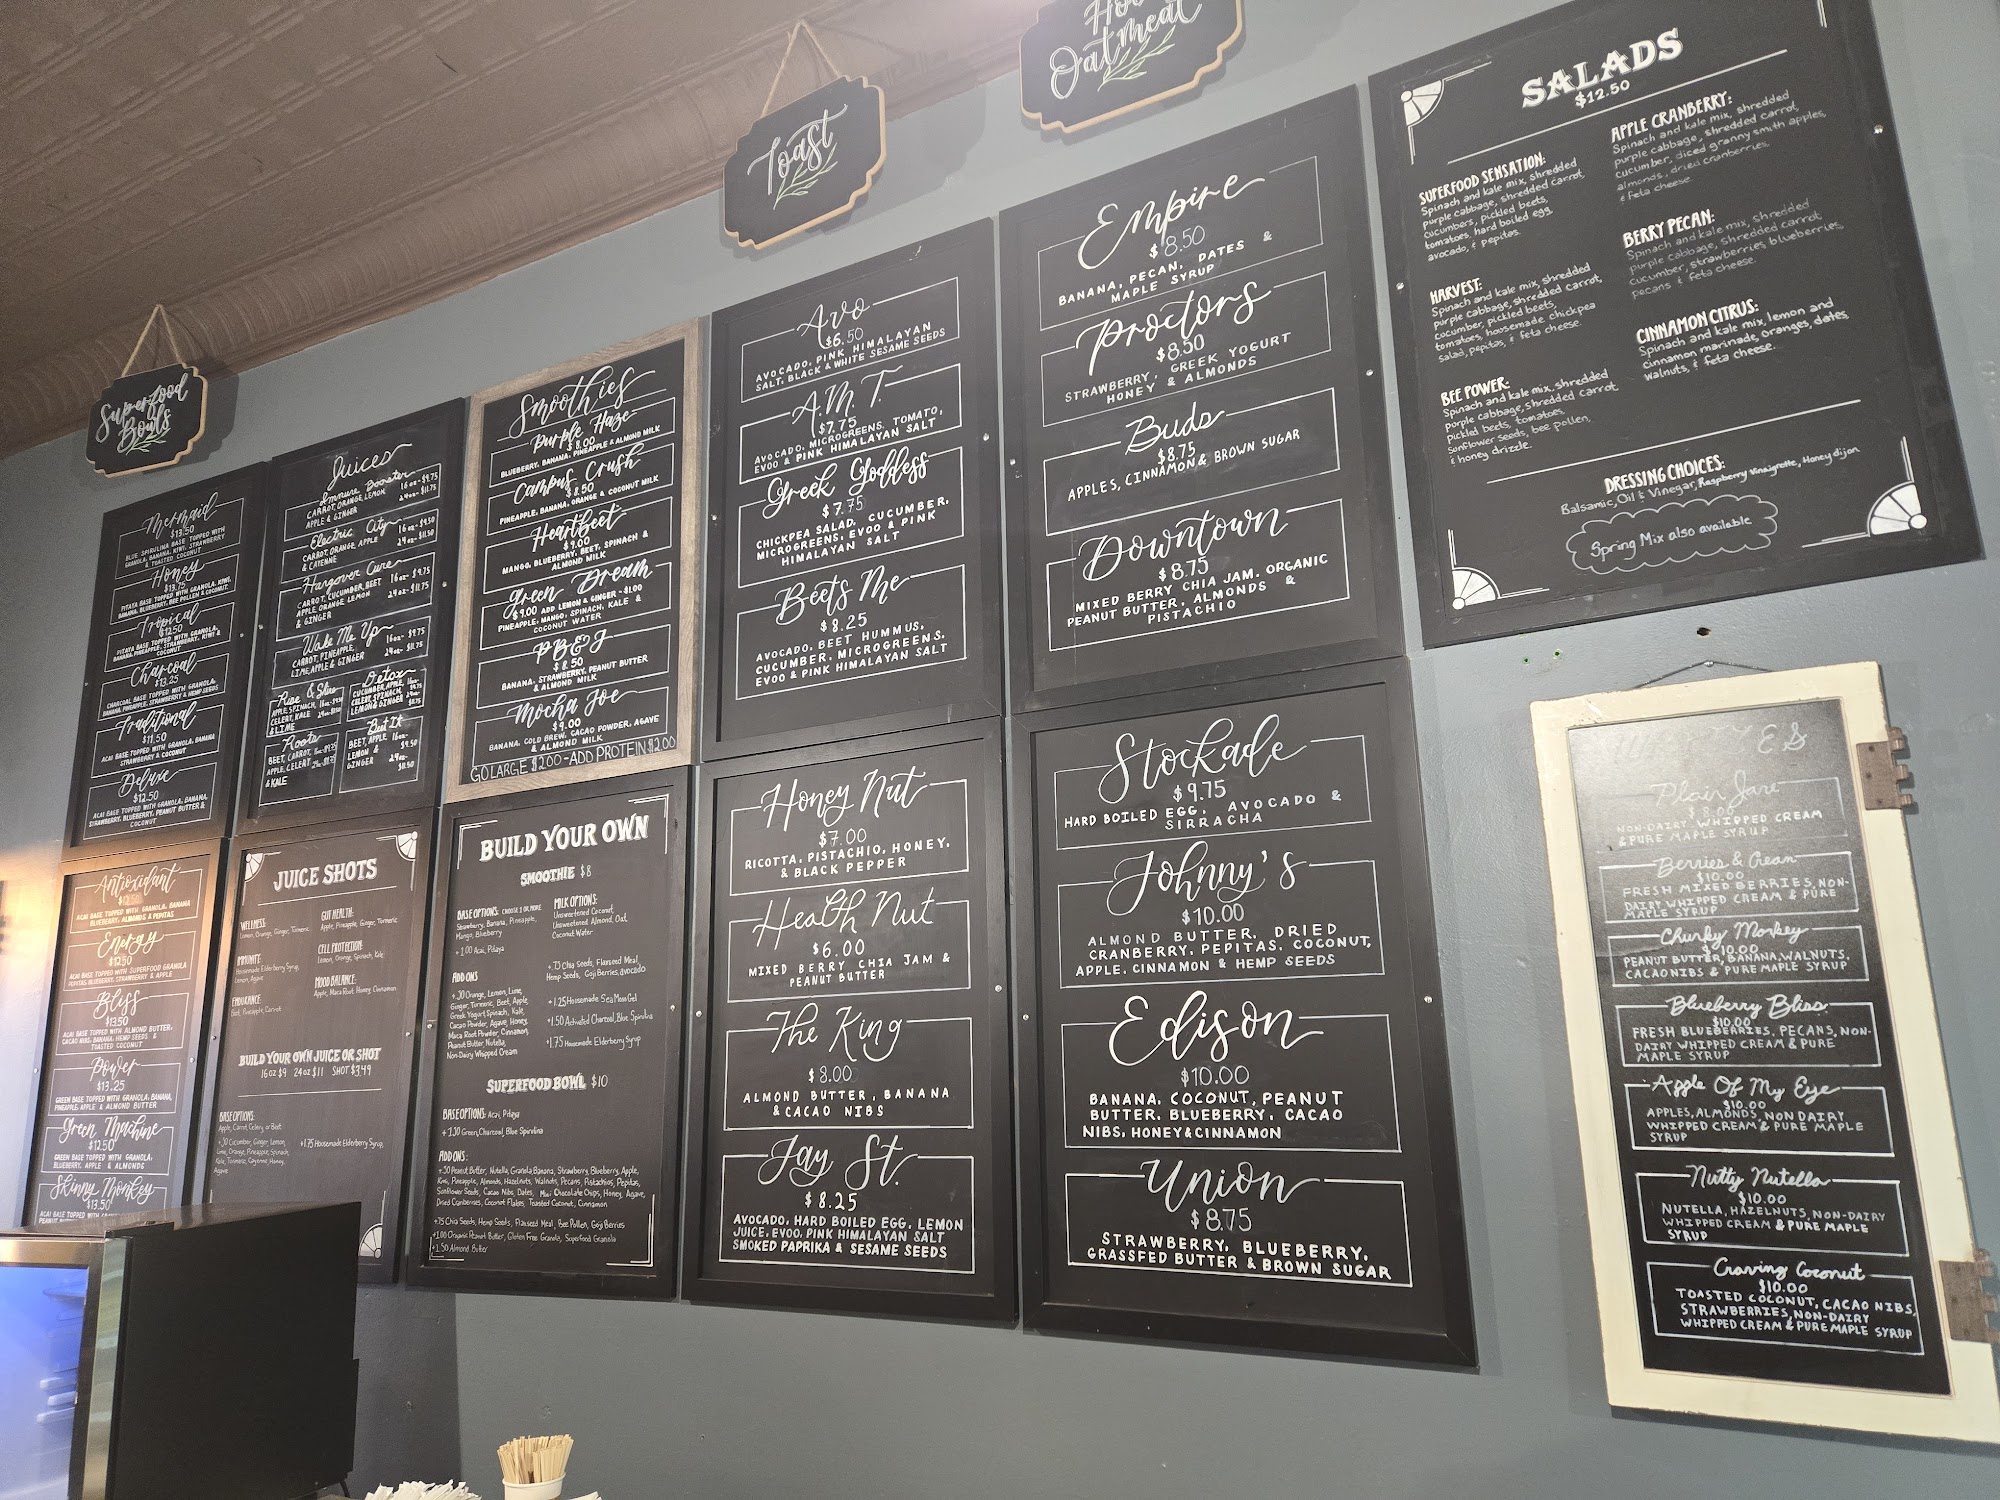 Superfood
Bowls
Toast
Hot
Oatmeal
Mermaid
$13.50
BLUE SPIRULINA BASE TOPPED WITH
GRANOLA, BANANA, KIWI, STRAWBERRY
& TOASTED COCONUT
Honey
$13.75
PITAYA BASE TOPPED WITH GRANOLA, KIWI,
BANANA, BLUEBERRY, BEE POLLEN & COCONUT
Tropical
$12.50
PITAYA BASE TOPPED WITH GRANOLA,
BANANA, PINEAPPLE, STRAWBERRY, KIWI &
COCONUT
Charcoal
$13.25
CHARCOAL BASE TOPPED WITH GRANOLA,
BANANA, PINEAPPLE, STRAWBERRY & HEMP SEEDS
Traditional
$11.50
ACAI BASE TOPPED WITH GRANOLA, BANANA
STRAWBERRY & COCONUT
Deluxe
$12.50
ACAI BASE TOPPED WITH GRANOLA, BANANA,
STRAWBERRY, BLUEBERRY, PEANUT BUTTER &
COCONUT
Antioxidant
$12.50
ACAI BASE TOPPED WITH GRANOLA, BANANA
BLUEBERRY, ALMONDS & PEPITAS
Energy
$12.50
ACAI BASE TOPPED WITH SUPERFOOD GRANOLA
PEPITAS, BLUEBERRY, STRAWBERRY & APPLE
Bliss
$13.50
ACAI BASE TOPPED WITH ALMOND BUTTER,
CACAO NIBS, BANANA, HEMP SEEDS &
TOASTED COCONUT
Power
$13.25
GREEN BASE TOPPED WITH GRANOLA, BANANA,
PINEAPPLE, APPLE & ALMOND BUTTER
Green Machine
$12.50
GREEN BASE TOPPED WITH GRANOLA,
BLUEBERRY, APPLE & ALMONDS
Skinny Monkey
$13.50
ACAI BASE TOPPED WITH
Juices
Immune Booster
CARROT, ORANGE, LEMON 16oz-$9.75
APPLE & GINGER 24oz-$11.75
Electric City
CARROT, ORANGE, APPLE 16oz-$9.50
& CAYENNE 24oz-$11.50
Hangover Cure
CARROT, CUCUMBER, BEET 16oz-$9.75
APPLE, ORANGE, LEMON 24oz-$11.75
& GINGER
Wake Me Up
CARROT, PINEAPPLE, 16oz-$9.75
LIME, APPLE & GINGER 24oz-$11.75
Rise & Shine
APPLE, SPINACH,
CELERY, KALE
& LIME
Detox
CUCUMBER, APPLE,
CELERY, SPINACH,
LEMON & GINGER
Roots
BEET, CARROT,
APPLE, CELERY
& KALE
Beet It
BEET, APPLE, 16oz-
LEMON & $9.50
GINGER 24oz-
$11.50
JUICE SHOTS
WELLNESS:
Lemon, Orange, Ginger, Turmeric
IMMUNITE:
Housemade Elderberry Syrup,
Lemon, Agave
ENDURANCE:
Beet, Pineapple, Carrot
GUT HEALTH:
Apple, Pineapple, Ginger, Turmeric
CELL PROTECTION:
Lemon, Orange, Spinach, Kale
MOOD BALANCE:
Apple, Maca Root, Honey, Cinnamon
BUILD YOUR OWN JUICE OR SHOT
16oz $9 24oz $11 SHOT $3.49
BASE OPTIONS:
Apple, Carrot, Celery, or Beet
+.50 Cucumber, Ginger, Lemon,
Lime, Orange, Pineapple, Spinach,
Kale, Turmeric, Cayenne, Honey,
Agave
+1.75 Housemade Elderberry Syrup,
Smoothies
Purple Haze
$8.00
BLUEBERRY, BANANA, PINEAPPLE & ALMOND MILK
Campus Crush
$8.50
PINEAPPLE, BANANA, ORANGE & COCONUT MILK
Heartbeet
$9.00
MANGO, BLUEBERRY, BEET, SPINACH &
ALMOND MILK
Green Dream
$9.00 ADD LEMON & GINGER - $1.00
PINEAPPLE, MANGO, SPINACH, KALE &
COCONUT WATER
PB&J
$8.50
BANANA, STRAWBERRY, PEANUT BUTTER
& ALMOND MILK
Mocha Joe
$9.00
BANANA, COLD BREW, CACAO POWDER, AGAVE
& ALMOND MILK
GO LARGE $2.00 - ADD PROTEIN $2.00
BUILD YOUR OWN
SMOOTHIE $8
BASE OPTIONS: CHOOSE 2 OR MORE
Strawberry, Banana, Pineapple,
Mango, Blueberry
+1.00 Acai, Pitaya
MILK OPTIONS:
Unsweetened Coconut,
Unsweetened Almond, Oat,
Coconut Water
ADD ONS
+.50 Orange, Lemon, Lime,
Ginger, Turmeric, Beet, Apple,
Greek Yogurt, Spinach, Kale,
Cacao Powder, Agave, Honey,
Maca Root Powder, Cinnamon,
Peanut Butter, Nutella,
Non-Dairy Whipped Cream
+.75 Chia Seeds, Flaxseed Meal,
Hemp Seeds, Goji Berries, avocado
+1.25 Housemade Sea Moss Gel
+1.50 Activated Charcoal, Blue Spirulina
+1.75 Housemade Elderberry Syrup
SUPERFOOD BOWL $10
BASE OPTIONS: Acai, Pitaya
+1.30 Green, Charcoal, Blue Spirulina
ADD ONS:
+.50 Peanut Butter, Nutella, Granola Banana, Strawberry, Blueberry, Apple,
Kiwi, Pineapple, Almonds, Hazelnuts, Walnuts, Pecans, Pistachios, Pepitas,
Sunflower Seeds, Cacao Nibs, Dates, Mini Chocolate Chips, Honey, Agave,
Dried Cranberries, Coconut Flakes, Toasted Coconut, Cinnamon
+.75 Chia Seeds, Hemp Seeds, Flaxseed Meal, Bee Pollen, Goji Berries
+1.00 Organic Peanut Butter, Gluten Free Granola, Superfood Granola
+1.50 Almond Butter
Avo
$6.50
AVOCADO, PINK HIMALAYAN
SALT, BLACK & WHITE SESAME SEEDS
A.M.T.
$7.75
AVOCADO, MICROGREENS, TOMATO,
EVOO & PINK HIMALAYAN SALT
Greek Goddess
$7.75
CHICKPEA SALAD, CUCUMBER,
MICROGREENS, EVOO & PINK
HIMALAYAN SALT
Beets Me
$8.25
AVOCADO, BEET HUMMUS,
CUCUMBER, MICROGREENS,
EVOO & PINK HIMALAYAN SALT
Honey Nut
$7.00
RICOTTA, PISTACHIO, HONEY,
& BLACK PEPPER
Health Nut
$6.00
MIXED BERRY CHIA JAM &
PEANUT BUTTER
The King
$8.00
ALMOND BUTTER, BANANA
& CACAO NIBS
Jay St.
$8.25
AVOCADO, HARD BOILED EGG, LEMON
JUICE, EVOO, PINK HIMALAYAN SALT
SMOKED PAPRIKA & SESAME SEEDS
Empire
$8.50
BANANA, PECAN, DATES &
MAPLE SYRUP
Proctors
$8.50
STRAWBERRY, GREEK YOGURT
HONEY & ALMONDS
Buds
$8.75
APPLES, CINNAMON & BROWN SUGAR
Downtown
$8.75
MIXED BERRY CHIA JAM, ORGANIC
PEANUT BUTTER, ALMONDS &
PISTACHIO
Stockade
$9.75
HARD BOILED EGG, AVOCADO &
SIRRACHA
Johnny's
$10.00
ALMOND BUTTER, DRIED
CRANBERRY, PEPITAS, COCONUT,
APPLE, CINNAMON & HEMP SEEDS
Edison
$10.00
BANANA, COCONUT, PEANUT
BUTTER, BLUEBERRY, CACAO
NIBS, HONEY & CINNAMON
Union
$8.75
STRAWBERRY, BLUEBERRY,
GRASSFED BUTTER & BROWN SUGAR
SALADS
$12.50
SUPERFOOD SENSATION:
Spinach and kale mix, shredded
purple cabbage, shredded carrot,
cucumbers, pickled beets,
tomatoes, hard boiled egg,
avocado, & pepitas.
HARVEST:
Spinach and kale mix, shredded
purple cabbage, shredded carrot,
cucumber, pickled beets,
tomatoes, housemade chickpea
salad, pepitas, & feta cheese.
BEE POWER:
Spinach and kale mix, shredded
purple cabbage, shredded carrot,
pickled beets, tomatoes,
sunflower seeds, bee pollen,
& honey drizzle.
APPLE CRANBERRY:
Spinach and kale mix, shredded
purple cabbage, shredded carrot,
cucumber, diced granny smith apples,
almonds, dried cranberries,
& feta cheese.
BERRY PECAN:
Spinach and kale mix, shredded
purple cabbage, shredded carrot,
cucumber, strawberries, blueberries,
pecans & feta cheese.
CINNAMON CITRUS:
Spinach and kale mix, lemon and
cinnamon marinade, oranges, dates,
walnuts, & feta cheese.
DRESSING CHOICES:
Balsamic, Oil & Vinegar, Raspberry Vinaigrette, Honey dijon
Spring Mix also available
Plain Jane
NON-DAIRY WHIPPED CREAM
& PURE MAPLE SYRUP
Berries & Cream
$10.00
FRESH MIXED BERRIES, NON-
DAIRY WHIPPED CREAM & PURE
MAPLE SYRUP
Chunky Monkey
$10.00
PEANUT BUTTER, BANANA, WALNUTS,
CACAO NIBS & PURE MAPLE SYRUP
Blueberry Bliss
$10.00
FRESH BLUEBERRIES, PECANS, NON-
DAIRY WHIPPED CREAM & PURE
MAPLE SYRUP
Apple Of My Eye
$10.00
APPLES, ALMONDS, NON DAIRY
WHIPPED CREAM & PURE MAPLE
SYRUP
Nutty Nutella
$10.00
NUTELLA, HAZELNUTS, NON-DAIRY
WHIPPED CREAM & PURE MAPLE
SYRUP
Craving Coconut
$10.00
TOASTED COCONUT, CACAO NIBS,
STRAWBERRIES, NON-DAIRY
WHIPPED CREAM & PURE MAPLE SYRUP